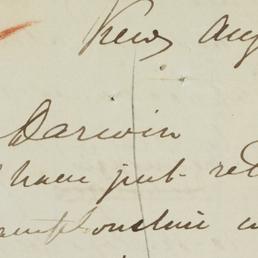 Kew Aug
Darwin
have just ret